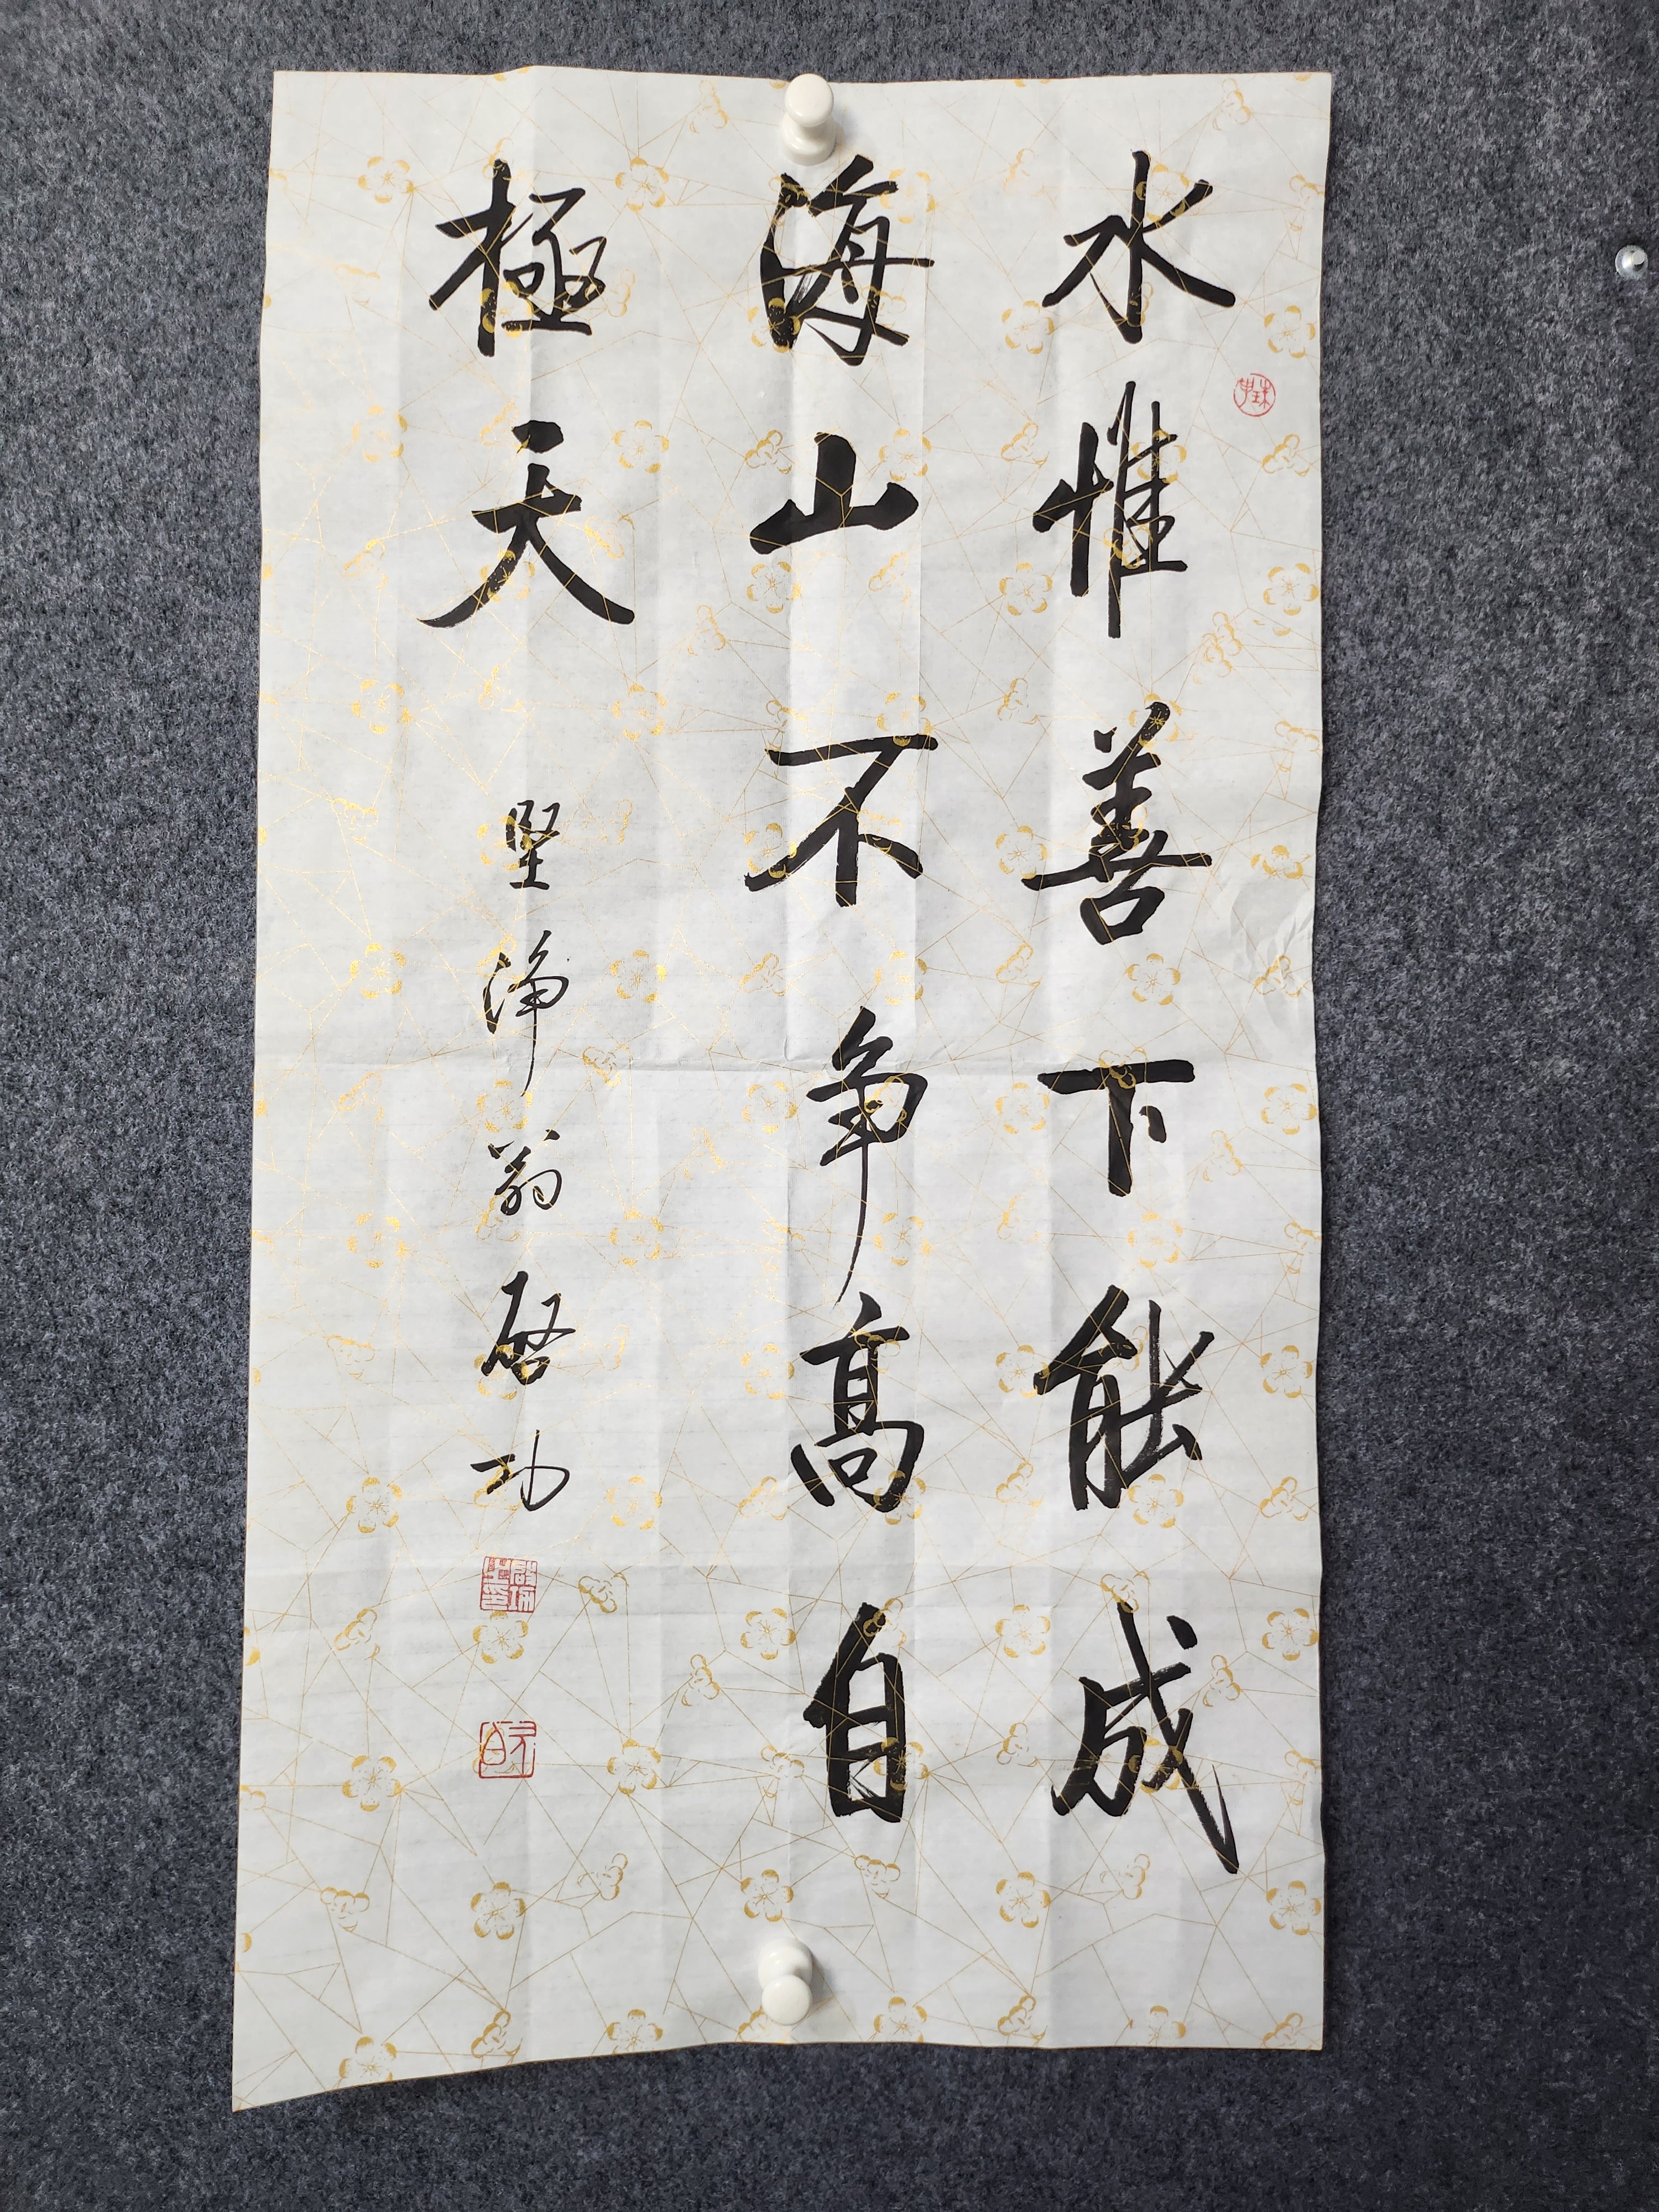 水惟善下能成
海山不争高自
極天
堅净翁啓功